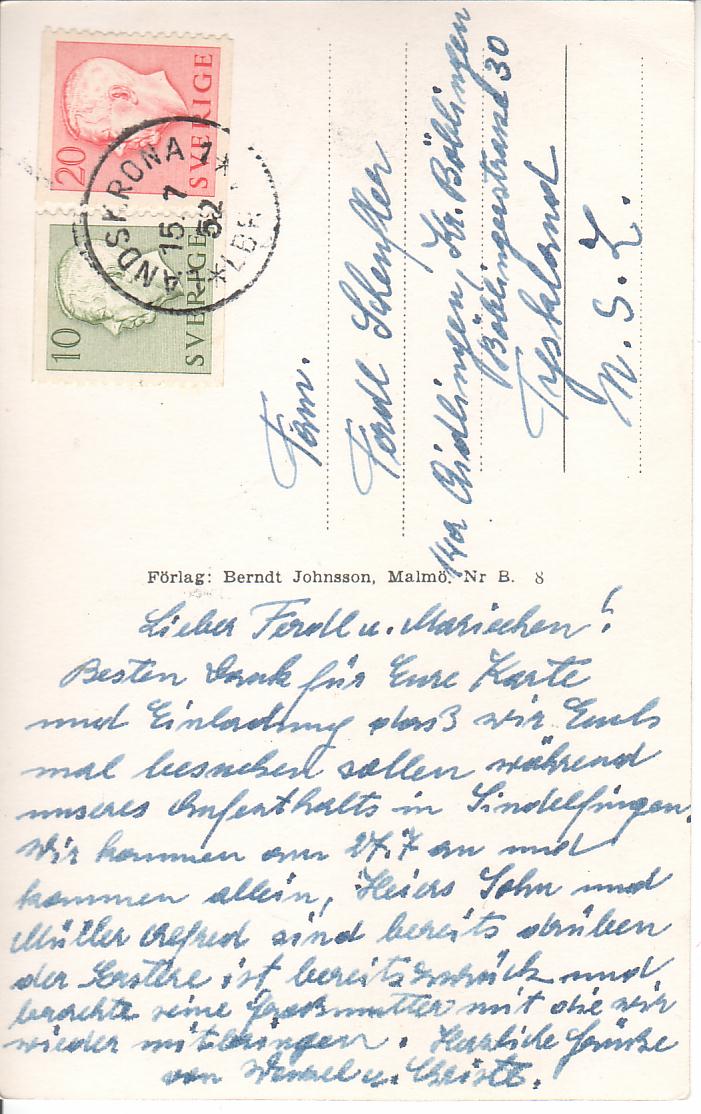 20
SVERIGE
10
SVERIGE
LANDSKRONA 1
15 7
52
* LBR *
Fam.
Ferdl Schenfler
14a Aidlingen, Kr. Böblingen
Böblingerstrand 30
Tyskland
U. S. Z.
Förlag: Berndt Johnsson, Malmö. Nr B. 8
Lieber Ferdl u. Mariechen!
Besten Dank für Eure Karte
und Einladung daß wir Euch
mal besuchen sollen während
unseres Aufenthalts in Sindelfingen.
Wir kommen am 27.7 an und
kommen allein, Heiers Sohn und
Müller Alfred sind bereits drüben
der Erstere ist bereits zurück und
brachte seine Großmutter mit die wir
wieder mitbringen. Herzliche Grüße
von Wenzel u. Christl.